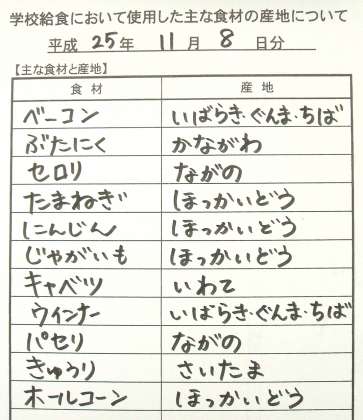 学校給食において使用した主な食材の産地について
平成 25年 11月 8日分
【主な食材と産地】
食材 産地
ベーコン いばらき・ぐんま・ちば
ぶたにく かながわ
セロリ ながの
たまねぎ ほっかいどう
にんじん ほっかいどう
じゃがいも ほっかいどう
キャベツ いわて
ウインナー いばらき・ぐんま・ちば
パセリ ながの
きゅうり さいたま
ホールコーン ほっかいどう